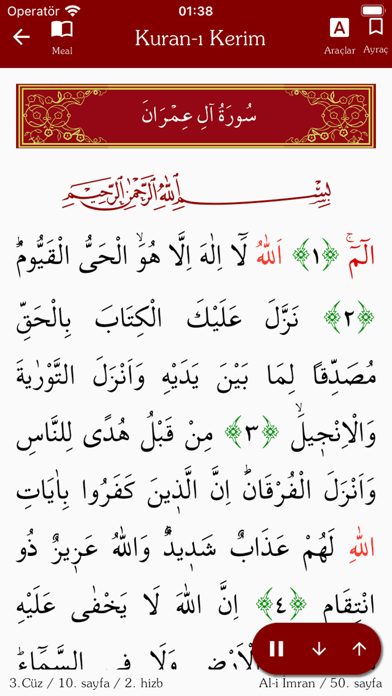 Operatör 01:38
Meal Kuran-ı Kerim Araçlar Ayraç
سُورَةُ اٰلِ عِمْرَانَ
بِسْمِ اللّٰهِ الرَّحْمٰنِ الرَّحِيمِ
الٓمٓۚ ﴿١﴾ اَللّٰهُ لَٓا اِلٰهَ اِلَّا هُوَۙ الْحَيُّ الْقَيُّومُۜ
﴿٢﴾ نَزَّلَ عَلَيْكَ الْكِتَابَ بِالْحَقِّ
مُصَدِّقًا لِمَا بَيْنَ يَدَيْهِ وَاَنْزَلَ التَّوْرٰيةَ
وَالْاِنْج۪يلَۙ ﴿٣﴾ مِنْ قَبْلُ هُدًى لِلنَّاسِ
وَاَنْزَلَ الْفُرْقَانَۜ اِنَّ الَّذ۪ينَ كَفَرُوا بِاٰيَاتِ
اللّٰهِ لَهُمْ عَذَابٌ شَد۪يدٌۜ وَاللّٰهُ عَز۪يزٌ ذُو
انْتِقَامٍ ﴿٤﴾ اِنَّ اللّٰهَ لَا يَخْفٰى عَلَيْهِ
الْاَرْضِ وَلَا فِي السَّمَٓاءِۜ
3.Cüz / 10. sayfa / 2. hizb Al-i İmran / 50. sayfa